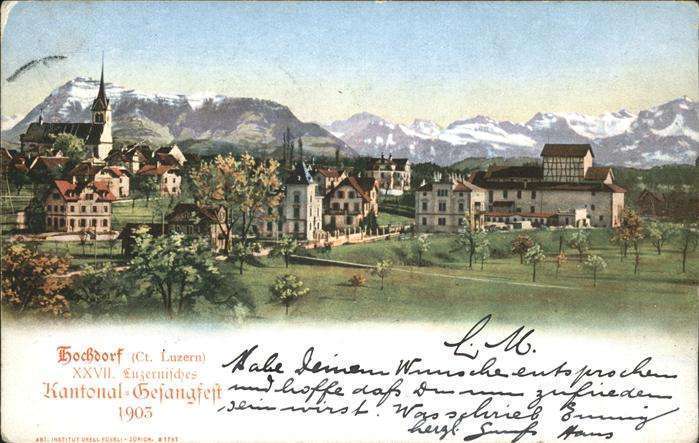 Hochdorf (Ct. Luzern)
XXVII. Luzernisches
Kantonal-Gesangfest
1903
L. M.
Habe Deinem Wunsche entsprochen
und hoffe daß Du nun zufrieden
sein wirst. Was schrieb
herzl. Hans
ART. INSTITUT ORELL FÜSSLI - ZÜRICH.